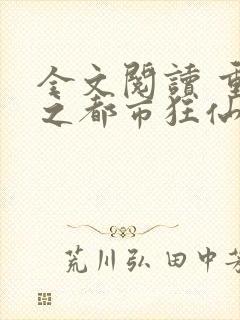 全文閱讀 重
之都市狂仙
荒川弘 田中芳